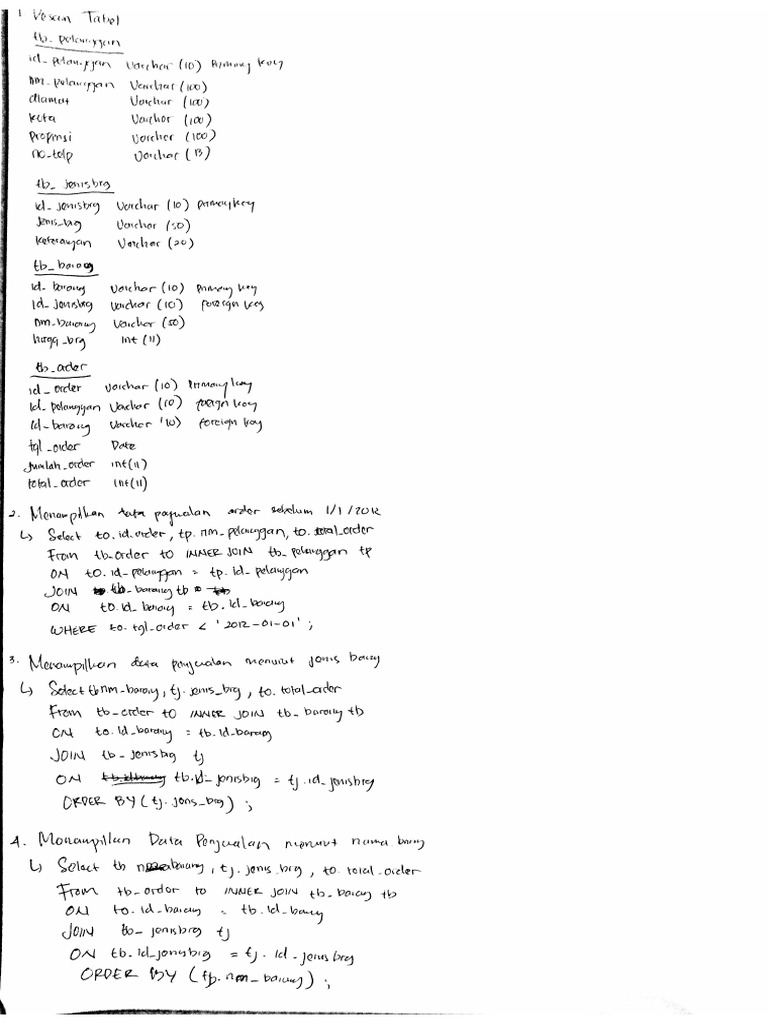 1. Desain Tabel
tb_pelanggan
id_pelanggan Varchar (10) Primary key
nm_pelanggan Varchar (100)
alamat Varchar (100)
kota Varchar (100)
propinsi Varchar (100)
no_telp Varchar (13)
tb_jenisbrg
id_jenisbrg Varchar (10) primary key
jenis_brg Varchar (50)
keterangan Varchar (20)
tb_barang
id_barang Varchar (10) primary key
id_jenisbrg Varchar (10) foreign key
nm_barang Varchar (50)
harga_brg int (11)
tb_order
id_order Varchar (10) Primary key
id_pelanggan Varchar (10) foreign key
id_barang Varchar (10) foreign key
tgl_order Date
jumlah_order int(11)
total_order int(11)
2. Menampilkan data penjualan order sebelum 1/1/2012
↳ Select to.id_order, tp.nm_pelanggan, to.total_order
From tb_order to INNER JOIN tb_pelanggan tp
ON to.id_pelanggan = tp.id_pelanggan
JOIN tb_barang tb
ON to.id_barang = tb.id_barang
WHERE to.tgl_order < '2012-01-01';
3. Menampilkan data penjualan menurut jenis barang
↳ Select tb nm_barang, tj.jenis_brg, to.total_order
From tb_order to INNER JOIN tb_barang tb
ON to.id_barang = tb.id_barang
JOIN tb_jenisbrg tj
ON tb.id_jenisbrg = tj.id_jenisbrg
ORDER BY (tj.jenis_brg);
4. Menampilkan Data Penjualan menurut nama barang
↳ Select tb nm_barang, tj.jenis_brg, to.total_order
From tb_order to INNER JOIN tb_barang tb
ON to.id_barang = tb.id_barang
JOIN tb_jenisbrg tj
ON tb.id_jenisbrg = tj.id_jenisbrg
ORDER BY (tb.nm_barang);